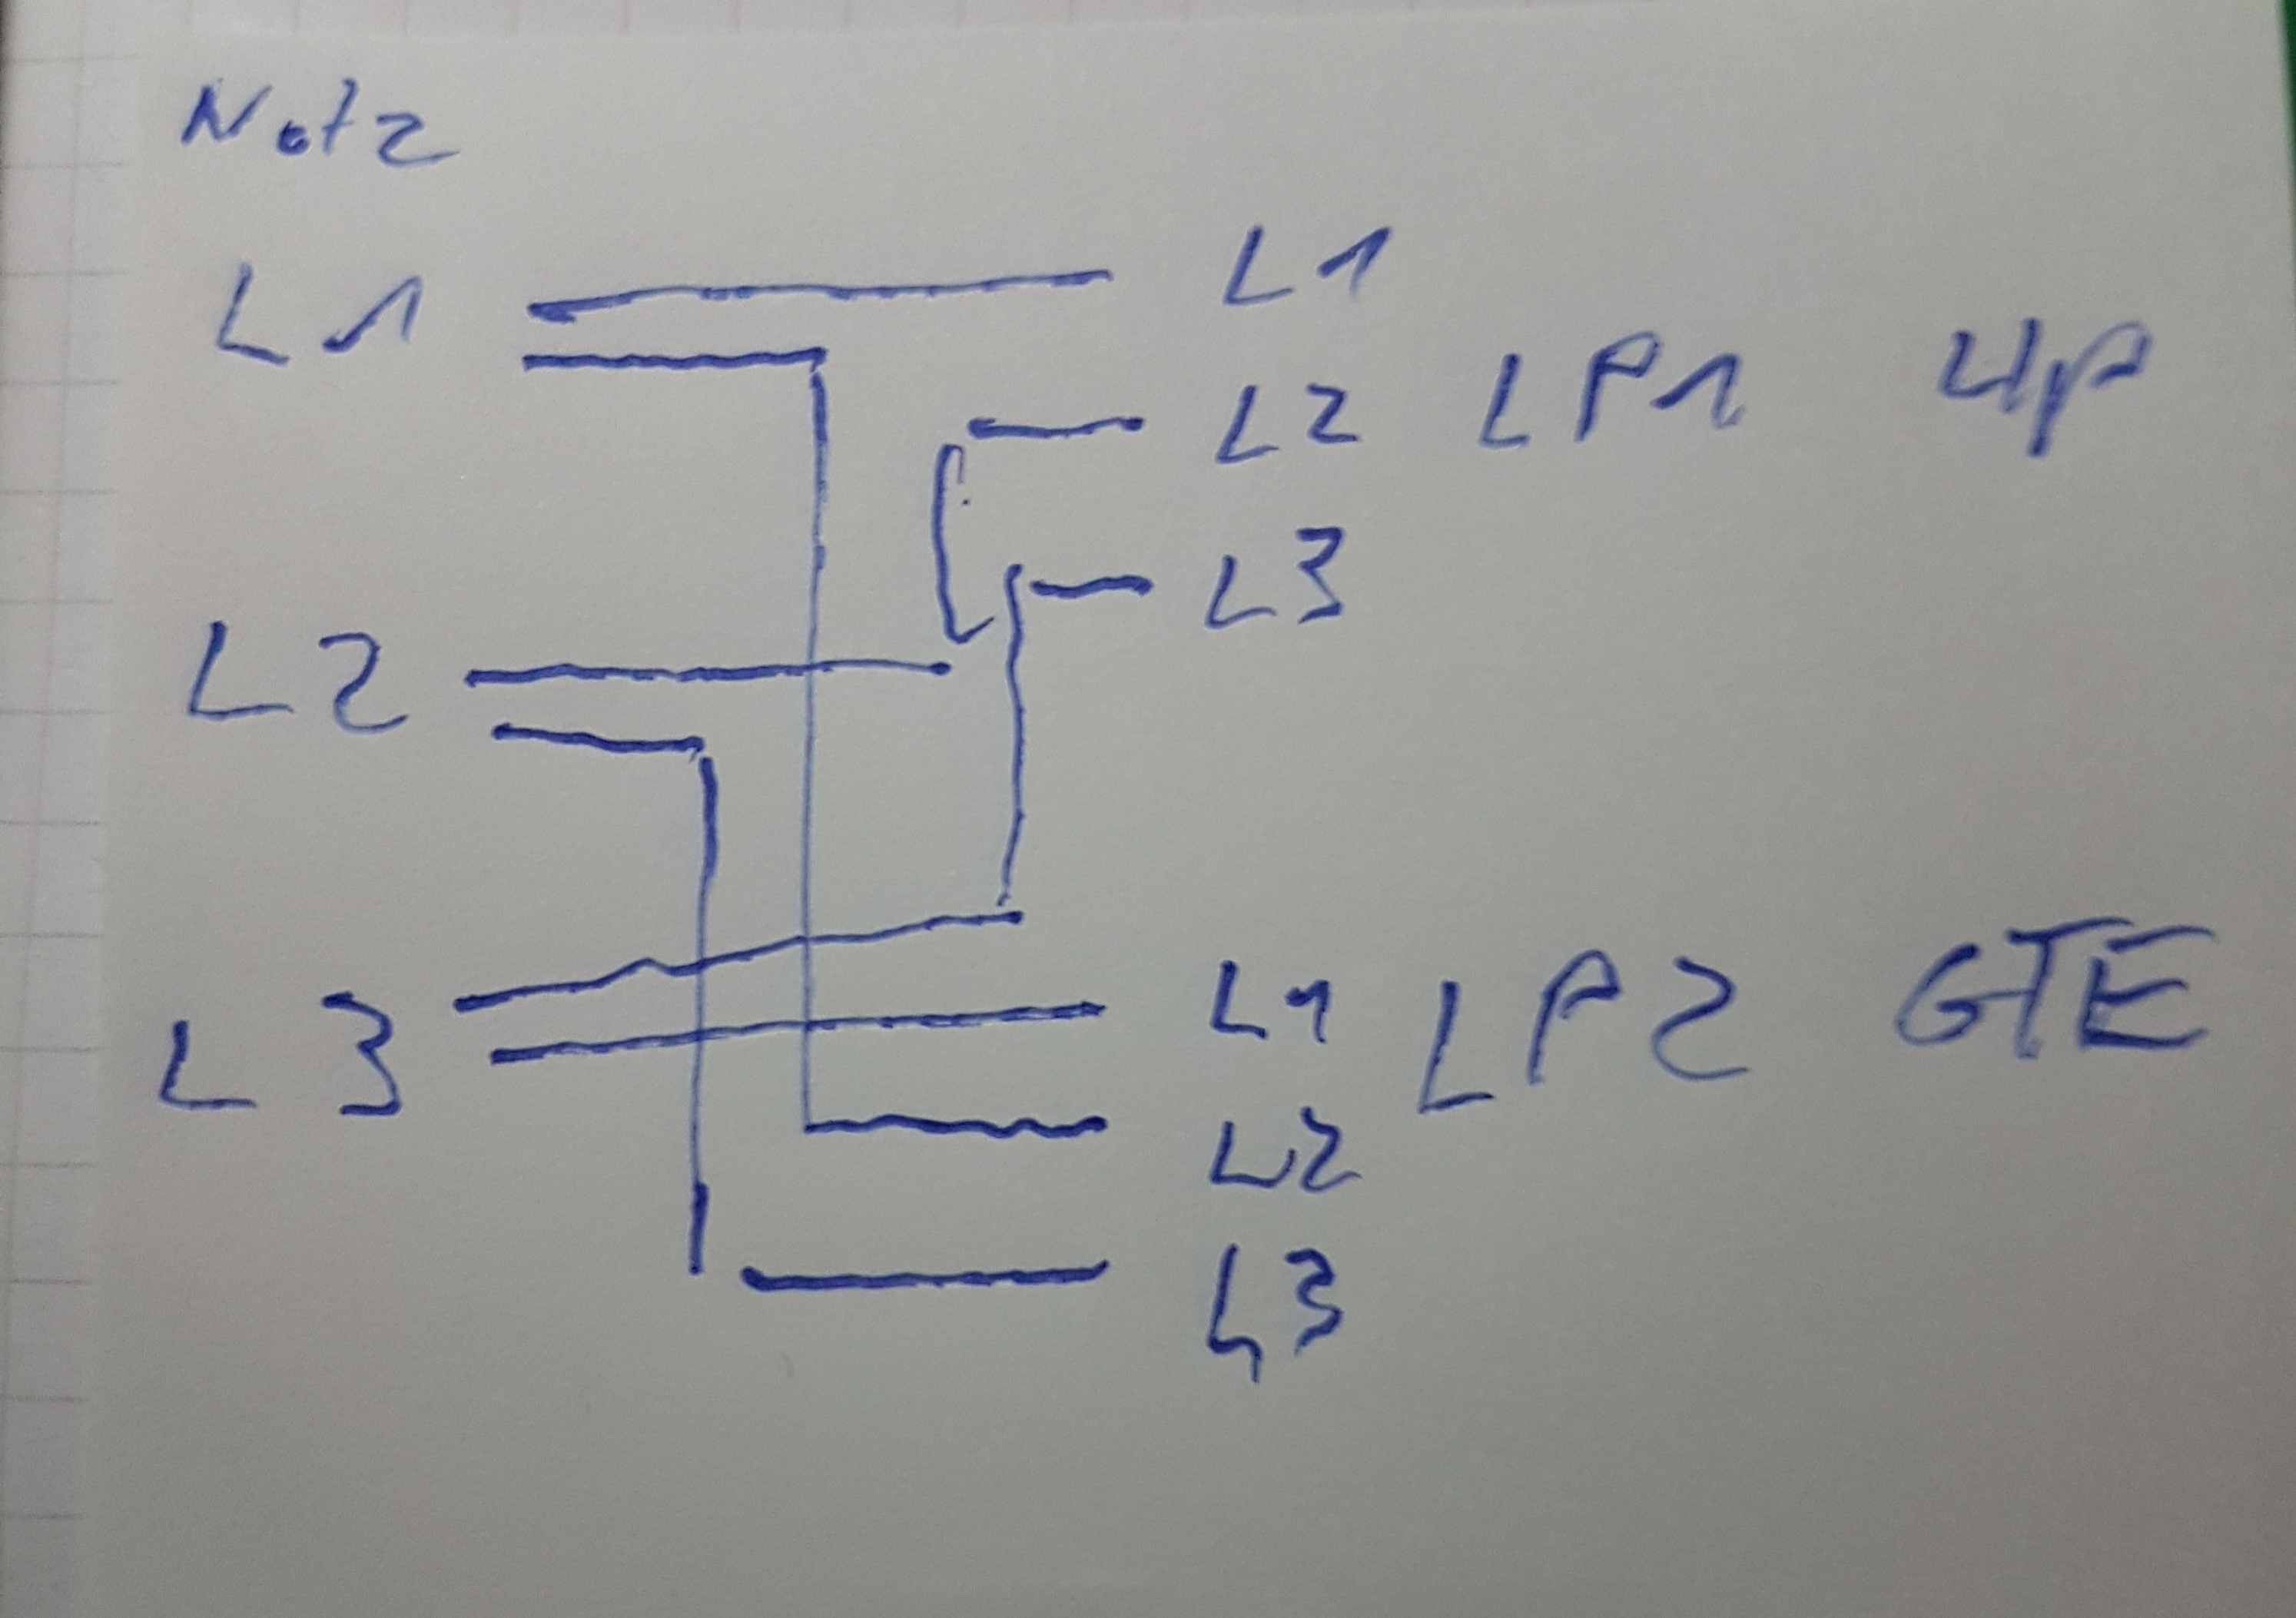 Netz
L1 L1
L2 LP1 Up
L3
L2
L3 L1 LP2 GTE
L2
L3